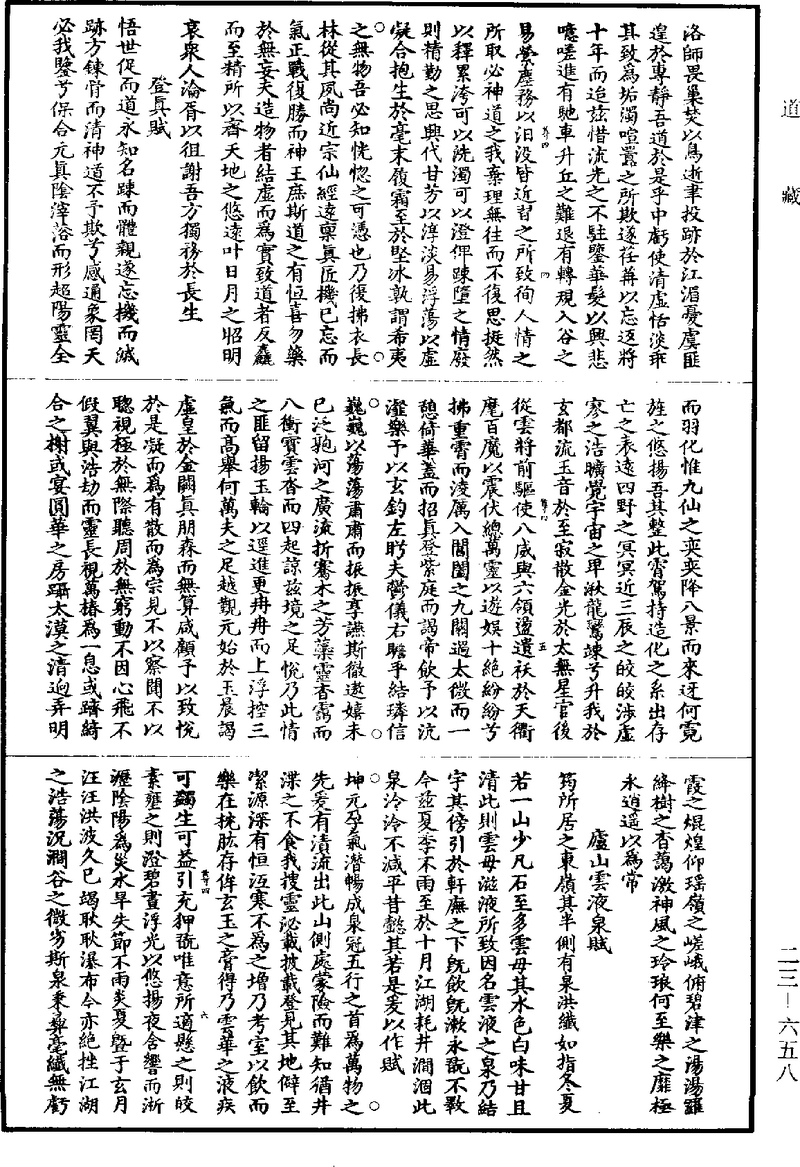 道藏
洛師畏巢焚以鳥逝聿投跡於江湄憂虞匪
遑於專靜吾道於是乎中虧使清虛恬淡乖
其致為垢濁喧囂之所欺遂荏苒以忘返將
十年而迨茲惜流光之不駐鑒華髮以興悲
噫嗟進有馳車升丘之難退有轉規入谷之
易縈塵務以汨没皆近習之所致徇人情之
所取必神道之我棄理無往而不復思挺然
以釋累滯可以洗濁可以澄俾踈墮之情廢
則精勤之思興代甘芳以淳淡易浮蕩以虛
凝合抱生於毫末履霜至於堅冰孰謂希夷
之無物吾必知恍惚之可憑也乃復拂衣長
林從其夙尚近宗仙經遠稟真匠機已忘而
氣正戰復勝而神王庶斯道之有恒喜勿藥
於無妄夫造物者結虛而為實致道者反麤
而至精所以齊天地之悠遠叶日月之昭明
哀衆人淪胥以徂謝吾方獨務於長生
登真賦
悟世促而道永知名踈而體親遂忘機而滅
跡方鍊骨而清神道不予欺兮感通象罔天
必我鑒兮保合元真陰滓浴而形超陽靈全
而羽化惟九仙之奕奕降八景而來迓何霓
旌之悠揚吾其整此霄駕持造化之糸出存
亡之表遠四野之冥冥近三辰之皎皎涉虛
寥之浩曠覺宇宙之卑湫龍驂竦兮升我於
玄都流玉音於至寂散金光於太無星官後
從雲將前驅使八威與六領盪遺祅於天衢
麾百魔以震伏總萬靈以遊娱十絶紛紛兮
拂重霄而淩厲入閶闔之九關過太微而一
憩倚華蓋而招真登紫庭而謁帝飲予以沆
瀣樂予以玄鈞左盻夫欝儀右瞻乎結璘信
巍巍以蕩蕩肅肅而振振享讌斯徹遨嬉未
已泛馳河之廣流折騫木之芳蘂靈香靄而
八衝寶雲沓而四起諒茲境之足悅乃此情
之匪留揚玉輪以逕進更冉冉而上浮控三
氣而高舉何萬天之足越覲元始於玉晨謁
虛皇於金闕真朋森而無算咸顧予以致悅
於是凝而為有散而為宗見不以察聞不以
聦視極於無際聽周於無窮動不因心飛不
假翼與浩劫而靈長視萬椿為一息或躋綺
合之榭或宴圓華之房躡太漠之清逈弄明
霞之焜煌仰瑶嶺之嵯峨俯碧津之湯湯躍
絳樹之杳藹激神風之玲琅何至樂之靡極
永逍遥以為常
廬山雲液泉賦
筠所居之東嶺其半側有泉洪纖如指冬夏
若一山少凡石至多雲母其水色白味甘且
清此則雲母滋液所致因名雲液之泉乃結
宇其傍引於軒廡之下旣飲旣漱永翫不斁
今茲夏季不雨至於十月江湖耗井澗涸此
泉泠泠不減平昔懿其若是爰以作賦
坤元孕氣潛暢成泉冠五行之首為萬物之
先爰有漬流出此山側處蒙險而難知猶井
渫之不食我搜靈泌載披載登見其地僻至
潔源深有恒沍寒不為之增乃考室以飲而
樂在挽肱存侔玄玉之膏得乃雲華之液疾
可蠲生可益引充狎翫唯意所適懸之則皎
素壅之則澄碧晝浮光以悠揚夜含響而淅
瀝陰陽為災水旱失節不雨炎夏暨于玄月
汪汪洪波久已竭耿耿瀑布今亦絶挫江湖
之浩蕩況澗谷之微劣斯泉秉彜毫纖無虧
二三—六五八